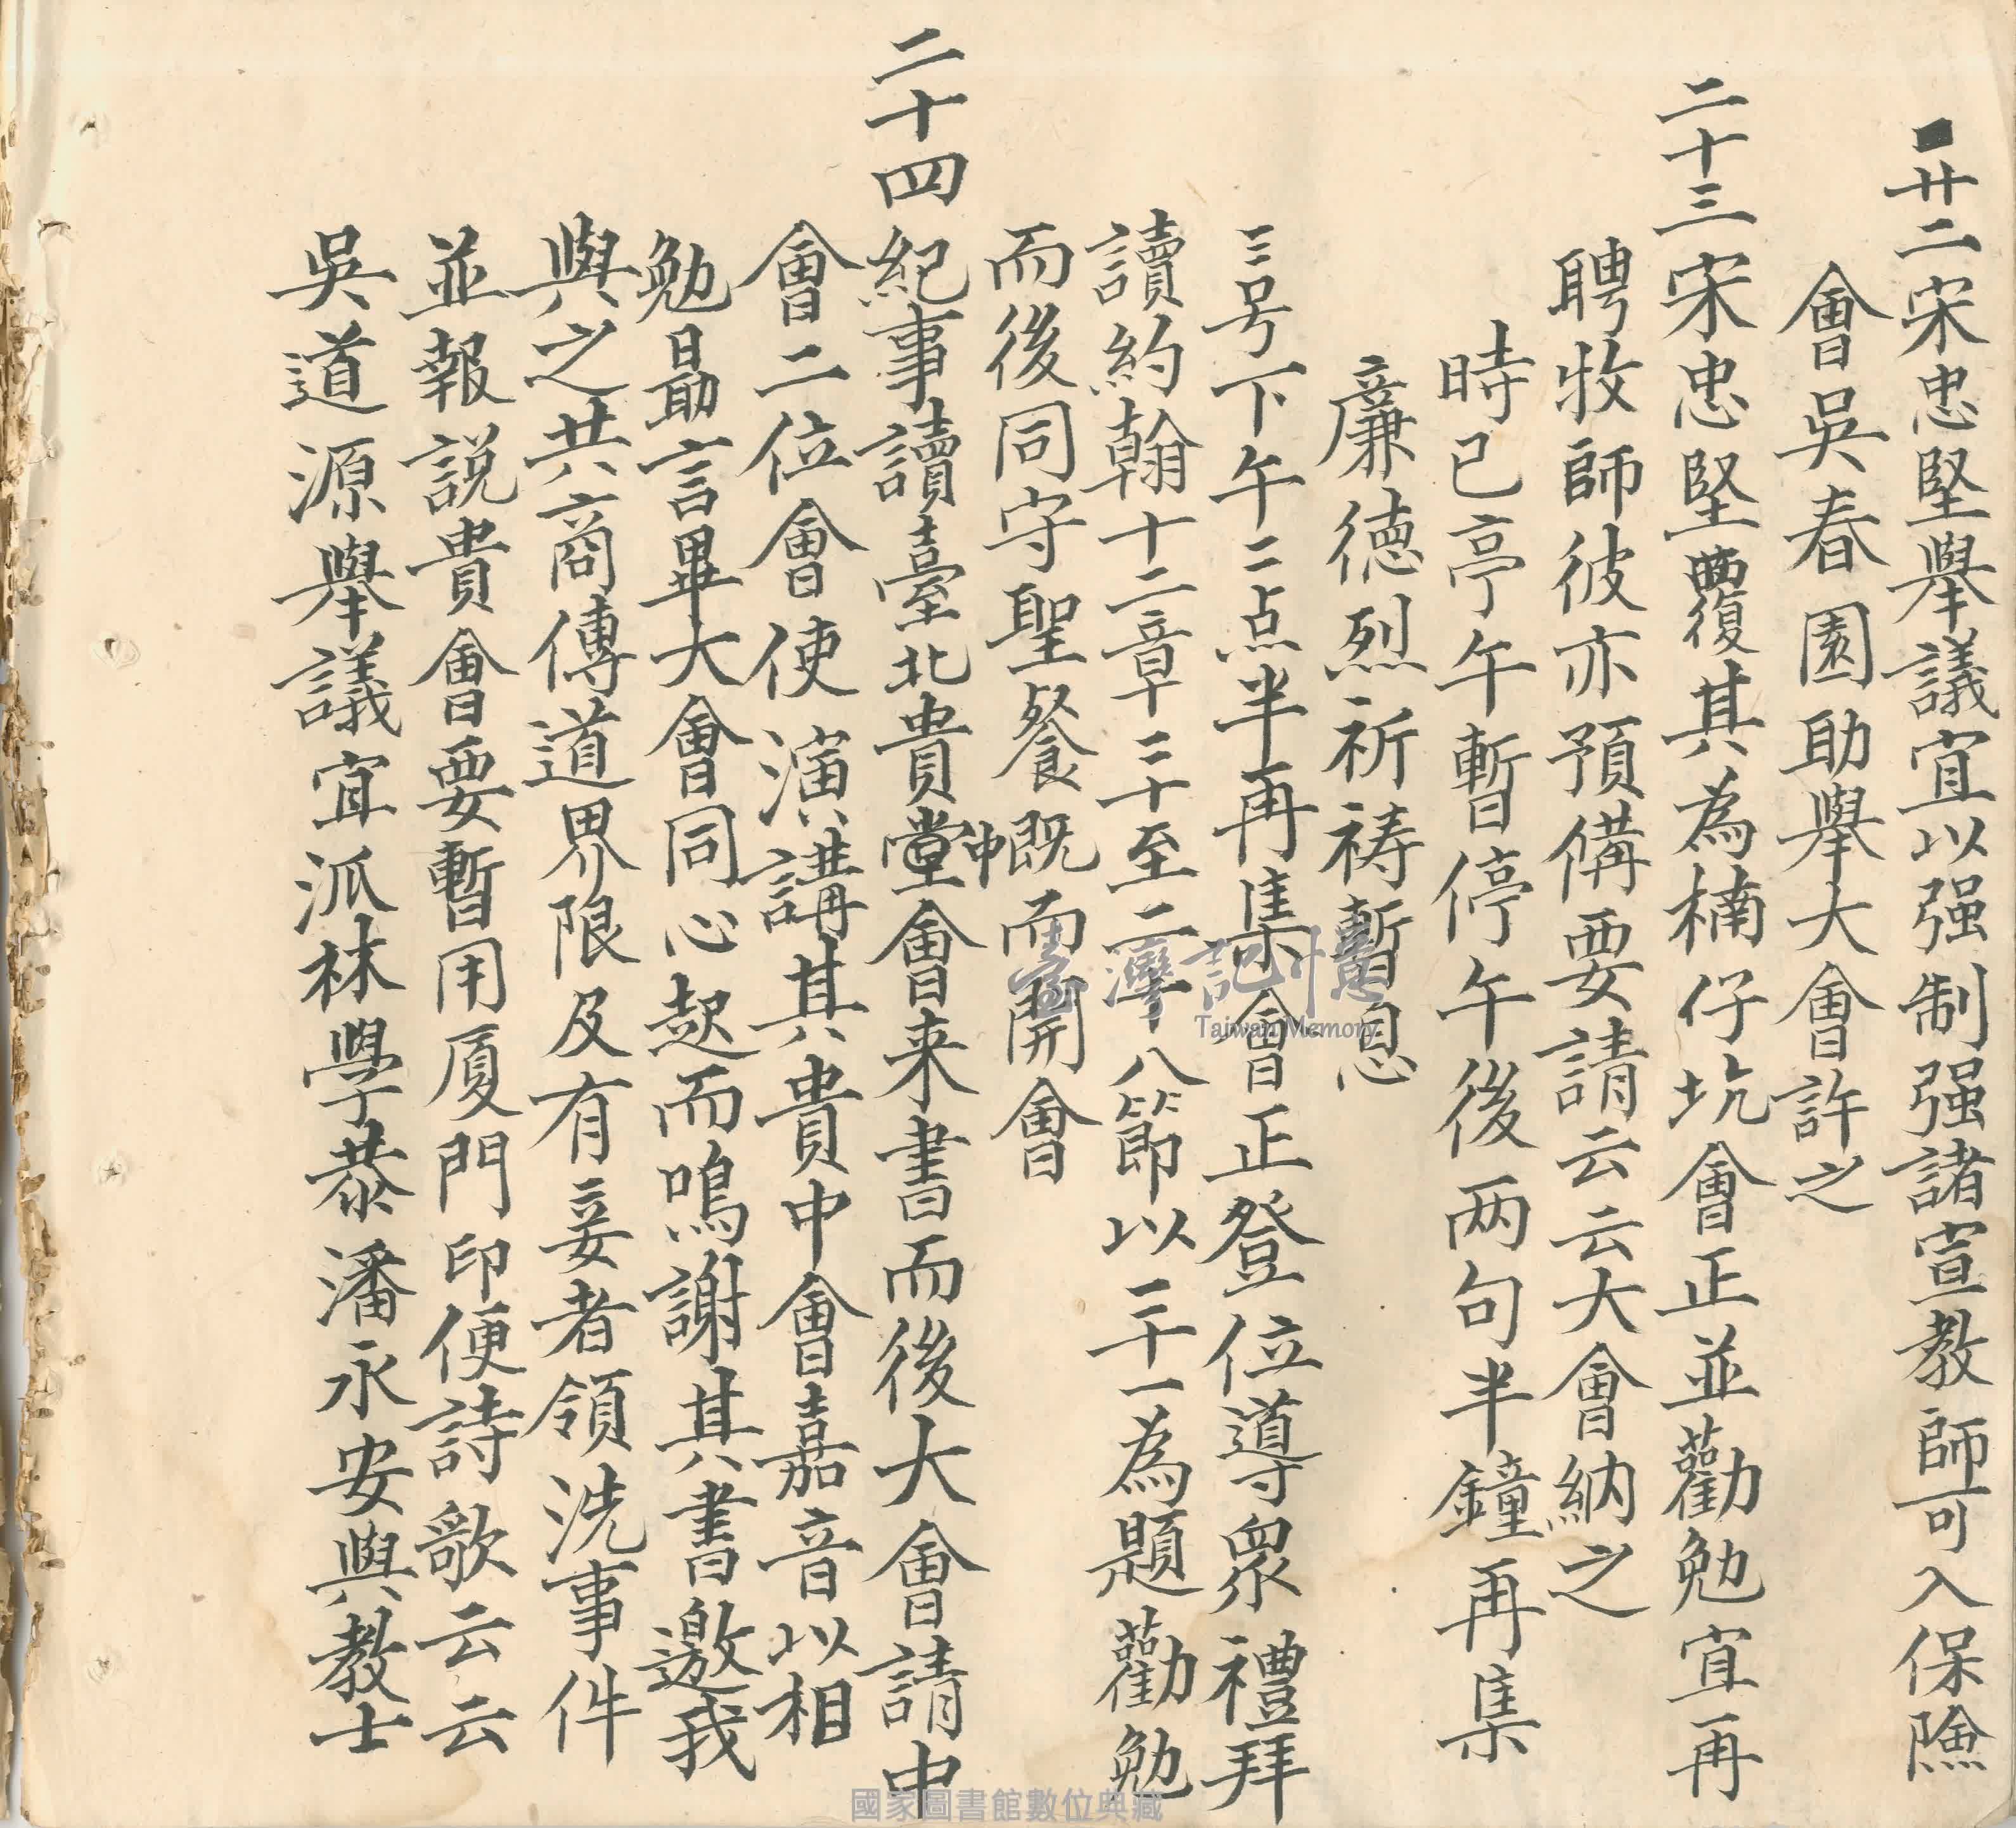 廿二宋忠堅舉議宜以强制强諸宣教師可入保險
會吳春園助舉大會許之
二十三宋忠堅覆其為楠仔坑會正並勸勉宜再
聘牧師彼亦預備要請云云大會納之
時已亭午暫停午後两句半鐘再集
廉德烈祈祷暫息
三号下午三点半再集會正登位導眾禮拜
讀約翰十二章二十至二十八節以二十一為題勸勉
而後同守聖餐既而開會
二十四紀事讀臺北貴堂仲會来書而後大會請中
會二位會使演講其貴中會嘉音以相
勉勗言畢大會同心起而鳴謝其書邀我
與之共商傳道界限及有妾者領洗事件
並報説貴會要暫用厦門印便詩歌云云
吳道源舉議宜派林學恭潘永安與教士
臺灣記憶
Taiwan Memory
國家圖書館數位典藏